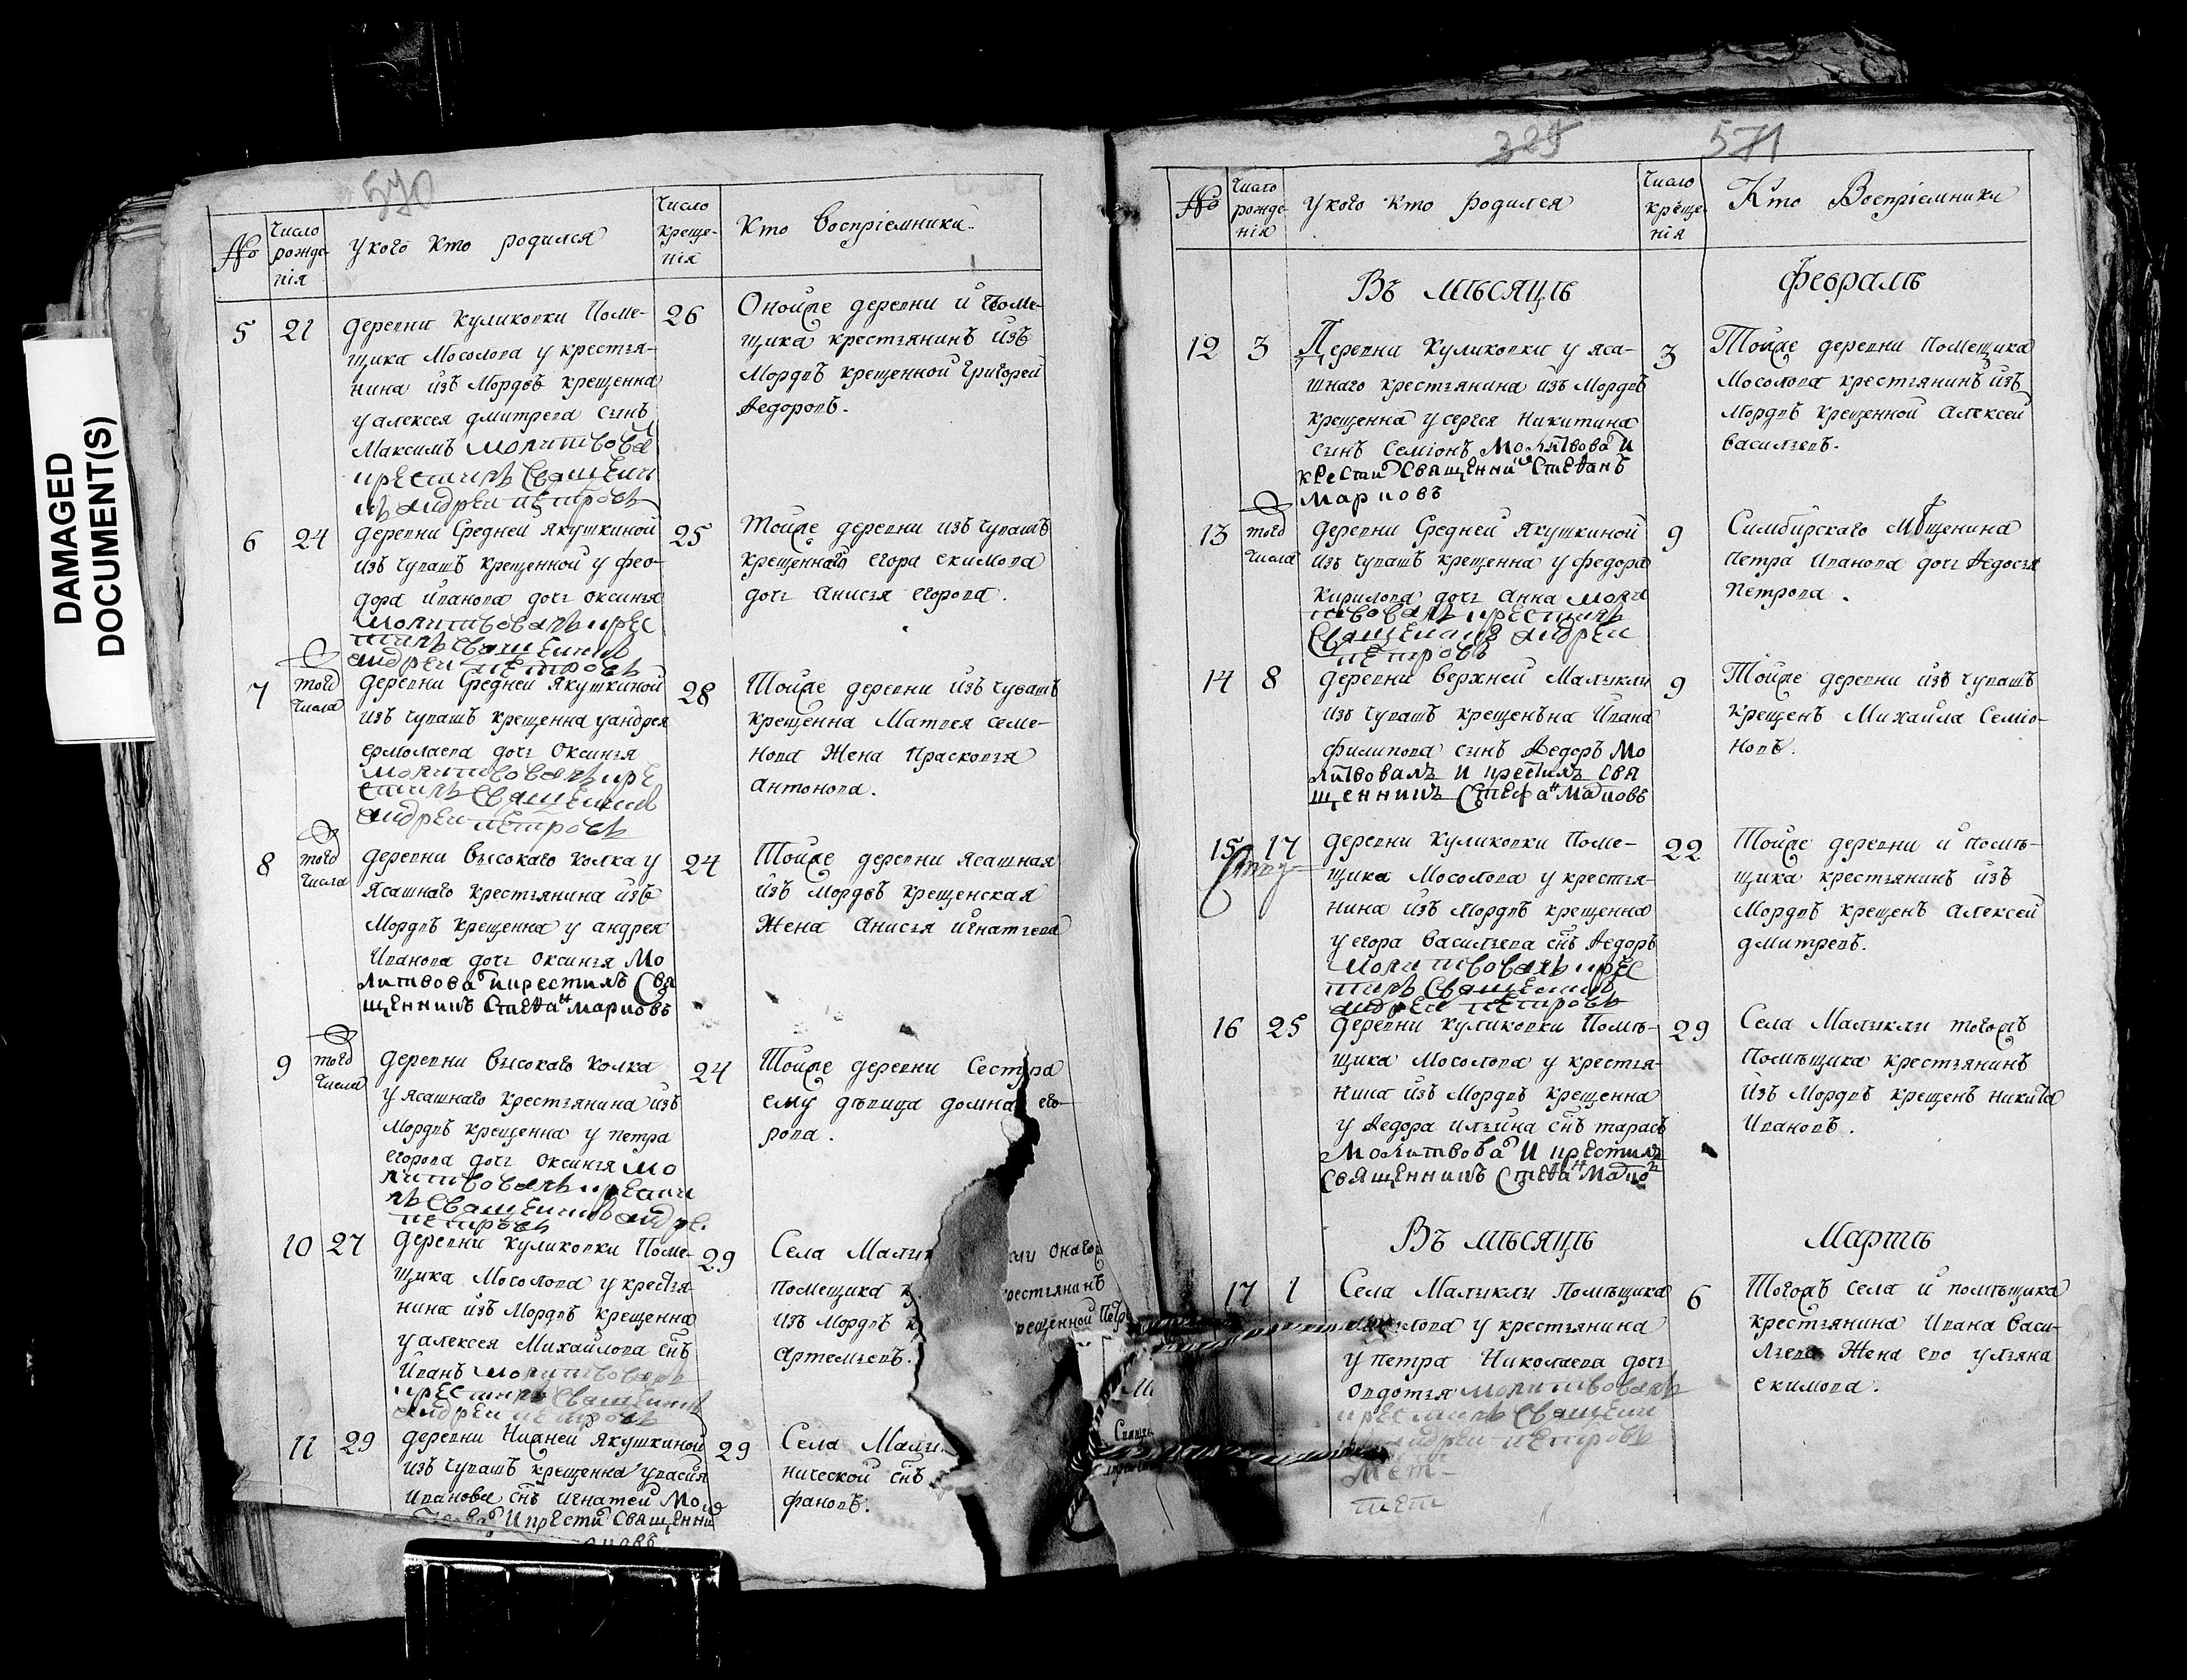 DAMAGED
DOCUMENT(S)
570
№
Число
рожде-
нія
У кого кто родился
Число
креще-
нія
Кто воспріемники
5
21
деревни Куликовки Поме-
щика Мосолова у крестья-
нина изъ Мордвъ крещенна
у алексея дмитрева сынъ
Максимъ молитвова
крестилъ священни
къ андреи петровъ
26
Оной же деревни и Поме-
щика крестьянинъ изъ
Мордвъ крещенной Григорей
Ѳедоровъ.
6
24
деревни Средней Якушкиной
изъ чувашъ крещенной у фео-
дора иванова дочь оксинья
молитвовалъ крес
тилъ священникъ
андреи петровъ
25
Той же деревни изъ чувашъ
крещеннаго егора екимова
дочь анисья егорова.
7
того
числа
деревни Средней Якушкиной
изъ чувашъ крещенна у андрея
ермолаева дочь Оксинья
молитвовалъ кре
стилъ священникъ
андреи петровъ
28
Той же деревни изъ чувашъ
крещенна Матвея семе-
нова Жена Прасковья
антонова.
8
того
числа
деревни высокаго колка у
Ясашнаго крестьянина изъ
Мордвъ крещенна у андрея
иванова дочь оксинья Мо
литвова и крестилъ Свя
щенникъ Стеѳанъ Марковъ
24
Той же деревни Ясашная
изъ Мордвъ крещенская
Жена Анисья игнатьева
9
того
числа
деревни высокаго колка
у Ясашнаго крестьянина изъ
Мордвъ крещенна у петра
егорова дочь оксинья мо
литвовалъ крести
лъ священникъ андре.
петровъ
24
Той же деревни Сестра
ему дѣвица домна его-
рова.
10
27
деревни куликовки Поме-
щика Мосолова у крестья-
нина изъ Мордвъ крещенна
у алексея Михайлова снъ
Иванъ молитвовалъ
крестилъ священникъ
андреи петровъ
29
Села Малы
помещика к
изъ Мордвъ к
артемьевъ.
ли онагож
рестьянинъ
рещенной Петръ
11
29
деревни Нижней Якушкиной
изъ чувашъ крещенна у васия
Иванова снъ игнатей Мол
И крести Священни
29
Села Малы
нической снъ
фановъ.
325
571
№
Число
рожде-
нія
У кого кто родился
Число
креще-
нія
Кто Воспріемники
Въ мѣсяцѣ
Февралѣ
12
3
Деревни куликовки у яса-
шнаго крестьянина изъ Мордвъ
крещенна у сергея Никитина
сынъ Семіонъ Молитвова и
крестилъ Священникъ Стеѳанъ
Марковъ
3
Той же деревни помещика
Мосолова крестьянинъ изъ
Мордвъ крещенной алексей
васильевъ.
13
того
числа
деревни Средней Якушкиной
изъ чувашъ крещенна у федора
кирилова дочь анна моли
твовалъ крестилъ
священникъ андреи
петровъ
9
Симбирскаго Мѣщенина
петра иванова дочь Ѳедосья
петрова.
14
8
деревни верхней Малыкли
изъ чувашъ крещенъна ивана
филипова сынъ Ѳедоръ Мо
литвовалъ и крестилъ свя
щенникъ Стефанъ Марковъ
9
Той же деревни изъ чувашъ
крещенъ Михайла Семіо-
новъ.
15
17
деревни куликовки Поме-
щика Мосолова у крестья-
нина изъ Мордвъ крещенна
у егора васильева снъ Ѳедоръ
молитвовалъ крес
тилъ священникъ
андреи петровъ
22
Той же деревни и помѣ-
щика крестьянинъ изъ
Мордвъ крещенъ алексей
дмитревъ.
16
25
деревни куликовки Помѣ-
щика Мосолова у крестья-
нина изъ Мордвъ крещенна
у Ѳедора ильина снъ тарасъ
Молитвова и крестилъ
священникъ Стеѳанъ Марко
29
Села Малыкли тогожъ
Помѣщика крестьянинъ
изъ Мордвъ крещенъ никита
ивановъ.
Въ мѣсяцѣ
Мартѣ
17
1
Села Малыкли Помѣщика
лова у крестьянина
у петра Николаева дочь
овдотья молитвовалъ
крестилъ священни
андреи петровъ
6
Тогожъ села и помѣщика
крестьянина ивана васи-
льева Жена ево ульяна
екимова.